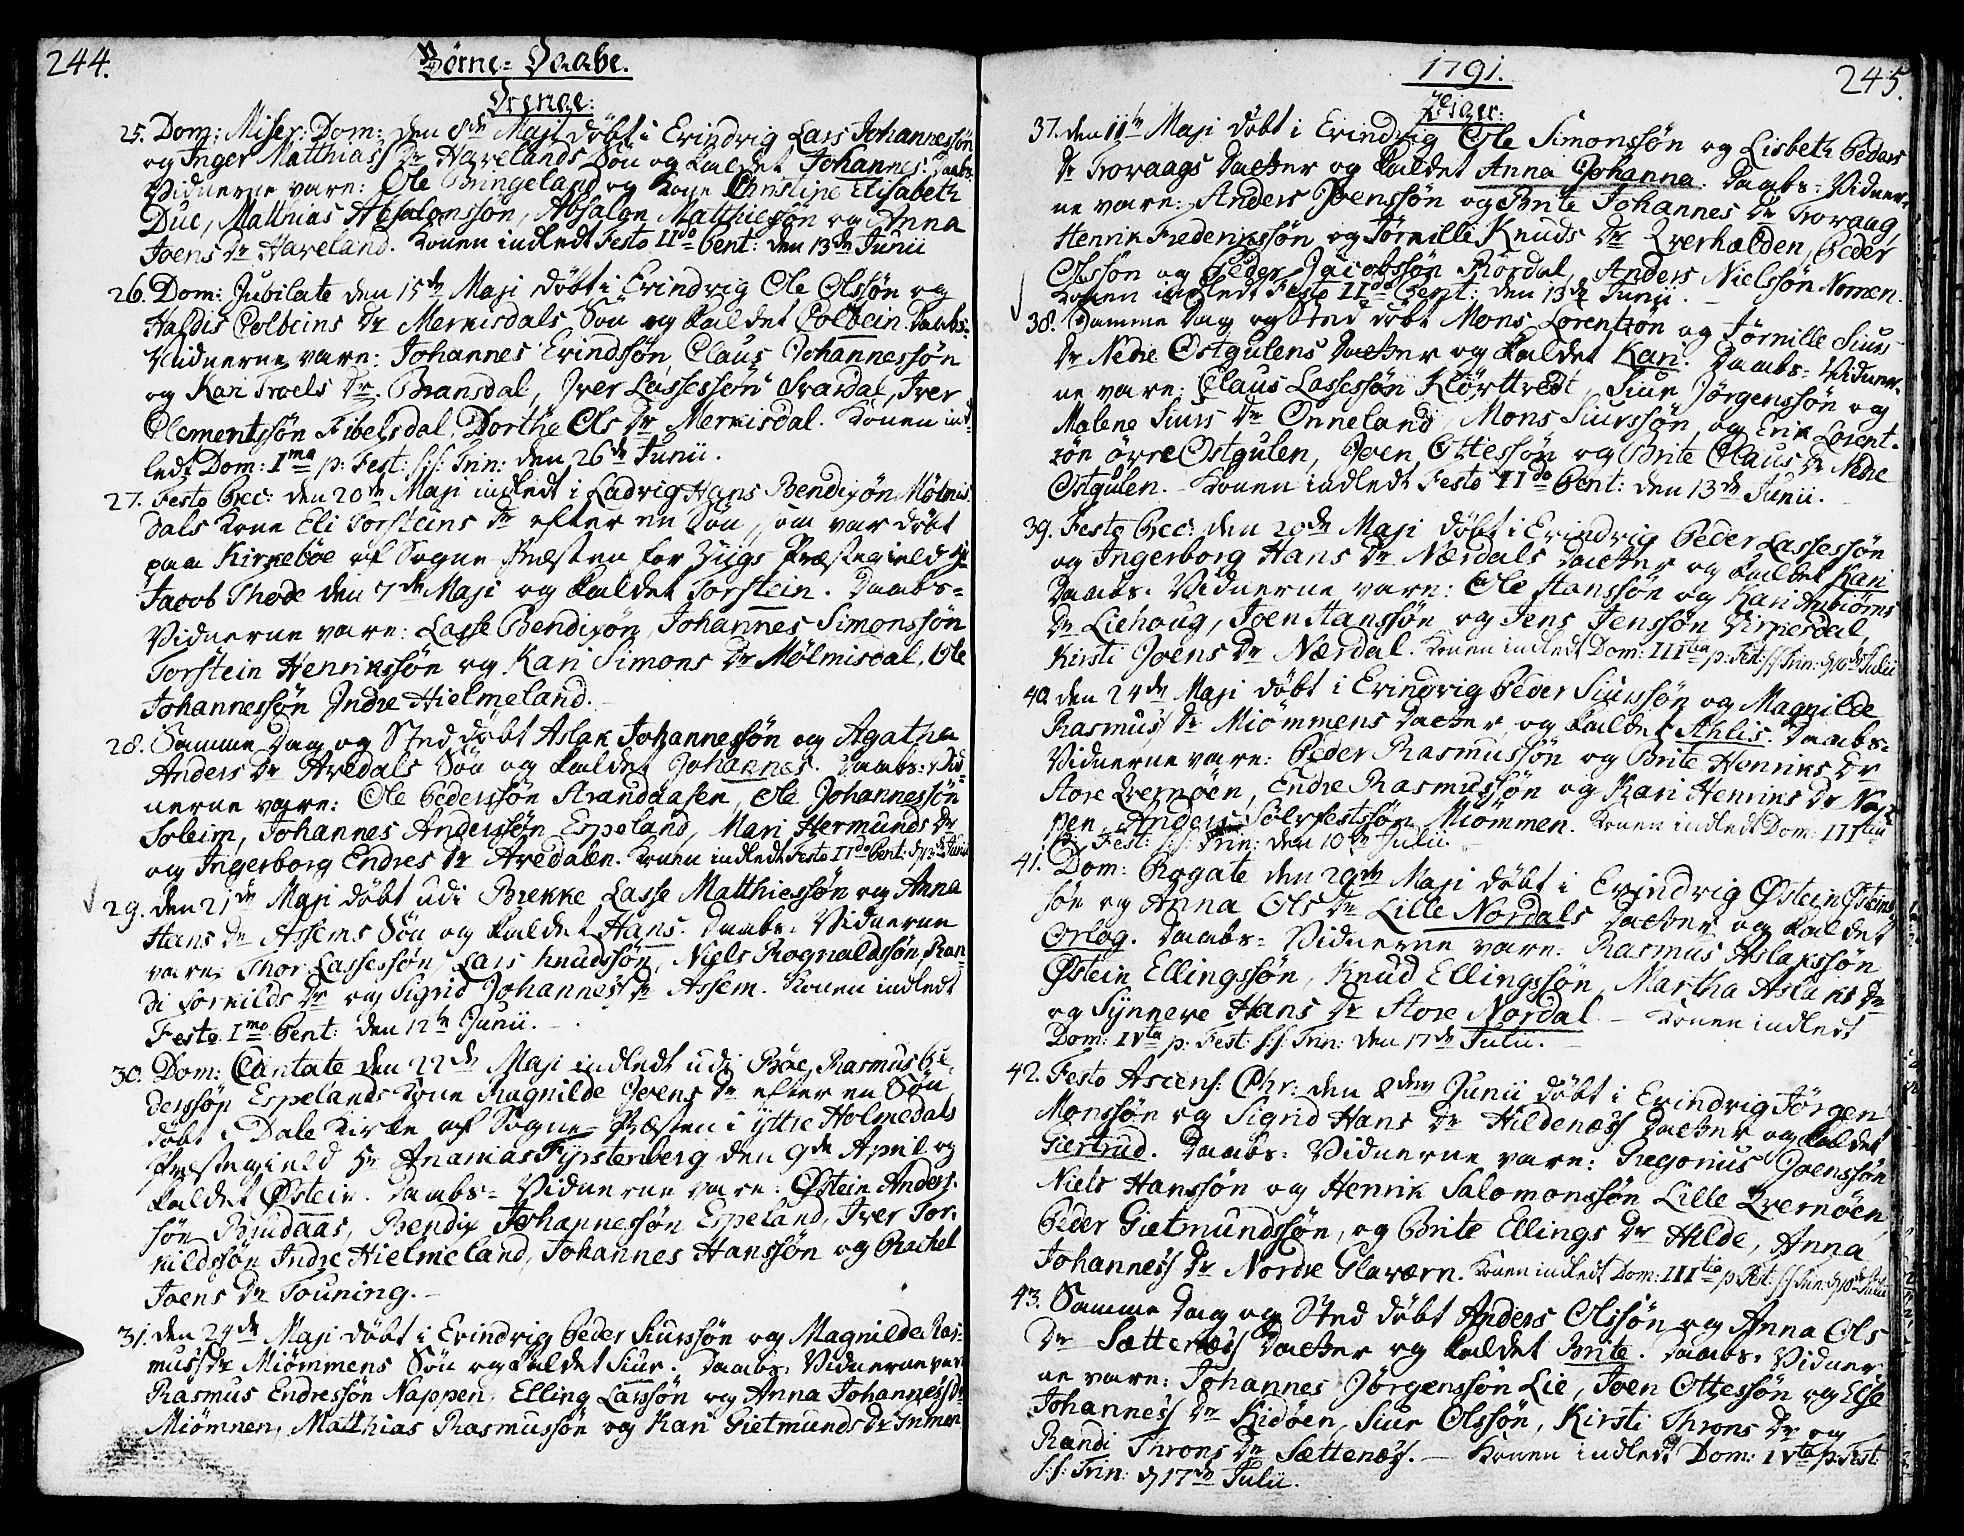 244.
Börne-Daabe.
Drenge:
25. Dom: Miser: Dom: den 8de Maji döbt i Evindvig Lars Johannessön
og Inger Matthias Dr Havelands Sön og kaldet Johannes. Daabs-
Vidnerne vare: Ole Bringeland og Kone Christine Elisabeth
Due, Matthias Absalonssön, Absalon Matthiesön og Anna
Joens Dr Haveland. Konen indledt Festo IIdo Pent: den 13de Junii
26. Dom: Jubilate den 15de Maji döbt i Evindvig Ole Olssön og
Haldis Colbeins Dr Merkisdals Sön og kaldet Colbein. Daabs-
Vidnerne vare: Johannes Evindssön, Claus Johannessön
og Kari Troels Dr Bransdal, Iver Lassessön Svardal, Iver
Clementssön Fibelsdal, Dorthe Ols Dr Merkisdal. Konen ind-
ledt Dom: Ima p: Fest: S:S: Trin: den 26de Junii.
27. Festo Prec: den 20de Maji indledt i Ladvig Hans Bendixön Mölmis-
dals Kone Eli Torsteins Dr efter en Sön, som var döbt
paa Kirkeböe af Sogne Præsten for Evigs Præstegield Hr
Jacob Thode den 7de Maji og kaldet Torstein. Daabs-
Vidnerne vare: Lasse Bendixön, Johannes Simonssön
Torstein Henrikssön og Kari Simons Dr Mölmisdal, Ole
Johannessön Indre Hielmeland.
28. Samme Dag og Sted döbt Aslak Johannessön og Agatha
Anders Dr Aredals Sön og kaldet Johannes. Daabs-Vid-
nerne vare: Ole Pederssön Strandaasen, Ole Johannessön
Soleim, Johannes Anderssön Espeland, Mari Hermunds Dr
og Ingerborg Endres Dr Aredalen. Konen indledt Festo IIdo Pent: d. 13de Junii
29. den 21de Maji döbt udi Brekke Lasse Matthiessön og Anna
Hans Dr Assems Sön og kaldet Hans. Daabs-Vidnerne
vare: Thor Lassessön, Lars Knudssön, Niels Rognaldssön, Ran-
di Torkilds Dr og Sigrid Johannes Dr Assem. Konen indledt
Festo Imo Pent: den 12te Junii.
30. Dom: Cantate den 22de Maji indledt udi Böe, Rasmus Pe-
derssön Espelands Kone Ragnilde Joens Dr efter en Sön
döbt i Dale Kirke af Sogne-Præsten i Yttre Holmedals
Præstegield Hr Ananias Fyrstenberg den 9de April og
kaldet Østein. Daabs-Vidnerne vare: Østein Anders-
sön Brudaas, Bendix Johannessön Espeland, Iver Tor-
kildssön Indre Hielmeland, Johannes Hanssön og Rachel
Joens Dr Touning.
31. den 24de Maji döbt i Evindvig Peder Siurssön og Magnilde Ras-
mus Dr Miömmens Sön og kaldet Siur. Daabs-Vidnerne vare
Rasmus Endressön Nappen, Elling Larssön og Anna Johannes Dr
Miömnen, Matthias Rasmussön og Kari Gietmunds Dr Inmen
1791.
245.
Piger:
37. den 11te Maji döbt i Evindvig Ole Simonssön og Lisbeth Peders
Dr Trovaags Datter og kaldet Anna Johanna. Daabs-Vidner-
ne vare: Anders Joenssön og Brite Johannes Dr Trovaag,
Henrik Frederikssön og Törnille Knuds Dr Qverhælden, Peder
Olssön og Peder Jacobssön Rördal, Anders Nielssön Nomen.
Konen indledt Festo IIdo Pent: den 13de Junii.
38. Samme Dag og Sted döbt Mons Lorentzön og Törnille Siurs
Dr Nedre Östgulens Datter og kaldet Kari. Daabs-Vidner-
ne vare: Claus Lassessön Klörtvedt, Siur Jörgenssön og
Malene Siurs Dr Onneland, Mons Siurssön, og Erik Lorent-
zön övre Östgulen, Joen Ottessön og Brite Claus Dr Nedre
Östgulen. Konen indledt Festo IIdo Pent: den 13de Junii.
39. Festo Prec: den 20de Maji döbt i Evindvig Peder Lassessön
og Ingerborg Hans Dr Nærdals Datter og kaldet Kari
Daabs-Vidnerne vare: Ole Hanssön og Kari Anbiörns
Dr Liehoug, Joen Hanssön og Jens Jenssön Virkesdal,
Kirsti Joens Dr Nærdal. Konen indledt Dom: IIItia p: Fest: S:S: Trin: d. 10de Julii
40. den 24de Maji döbt i Evindvig Peder Siurssön og Magnilde
Rasmus Dr Miömmens Datter og kaldet Ahlis. Daabs-
Vidnerne vare: Peder Rasmussön og Brite Henriks Dr
Store Qvernöen, Endre Rasmussön og Kari Henriks Dr Nap-
pen, Anders Sölvfestssön Miömmen. Konen indledt Dom: IIItia
p: Fest: S:S: Trin: den 10de Julii.
41. Dom: Rogate den 29de Maji döbt i Evindvig Östein Östeins-
sön og Anna Ols Dr Lille Nordals Datter og kaldet
Orlög. Daabs-Vidnerne vare: Rasmus Aslakssön
Östein Ellingssön, Knud Ellingssön, Martha Aslaks Dr
og Synneve Hans Dr Store Nordal. Konen indledt
Dom: IVta p: Fest: S:S: Trin: den 17de Julii.
42. Festo Ascens: Chr: den 2den Junii döbt i Evindvig Jörgen
Monssön og Sigrid Hans Dr Hildenæs Datter og kaldet
Giertrud. Daabs-Vidnerne vare: Gregorius Joenssön
Niels Hanssön og Henrik Salomonssön Lille Qvernöen,
Peder Gietmundssön, og Brite Ellings Dr Hilde, Anna
Johannes Dr Nordre Glaværn. Konen indledt Dom: IIItia p: Fest: S:S: Trin: d. 10de Julii
43. Samme Dag og Sted döbt Anders Olssön og Anna Ols
Dr Sættenæs Datter og kaldet Brite. Daabs-Vidner-
ne vare: Johannes Jörgenssön Lie, Joen Ottessön og Else
Johannes Dr Kidöen, Siur Olssön, Kirsti Throns Dr og
Randi Throns Dr Sættenæs. Konen indledt Dom: IVta p: Fest:
S:S: Trin: d. 17de Julii.